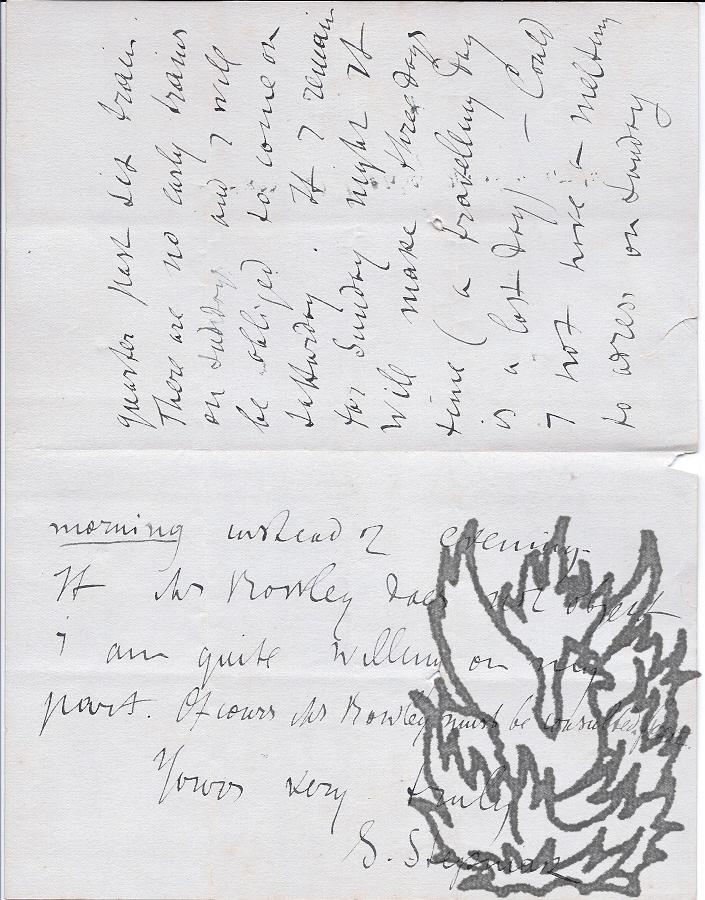 quarter past six train.
There are no early trains
on Sunday and I will
be obliged to come on
Satturday. If I remain
for Sunday night it
will make three days
time (a travelling day
is a lost day) – Could
I not have a meeting
to adress on Sunday
morning instead of evening.
If Mr Rowley does not object
I am quite willing on my
part. Of cours Mr Rowley must be consulted
Yours very truly
S.